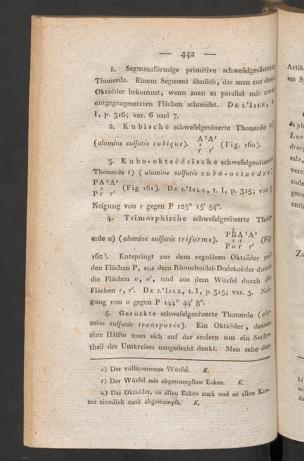 — 442 —
1. Segmentförmige primitive schwefelgesäuerte
Thonerde. Einem Segment ähnlich, das man aus dem
Oktaëder bekommt, wenn man es parallel mit zwei
entgegengesetzten Flächen schneidet. DE L'ISLE, t.
I, p. 316; var. 6 und 7.
2. Kubische schwefelgesäuerte Thonerde s)
(alumine sulfatée cubique). A¹A¹ (Fig. 160).
r r'
3. Kubo-oktaëdrische schwefelgesäuerte
Thonerde t) (alumine sulfatée cubo-octaèdre)
PA¹A¹
P r r' (Fig 161). DE L'ISLE, t. I, p. 315; var.
Neigung von r gegen P 125° 15' 54".
4. Trimorphische schwefelgesäuerte Thon-
erde u) (alumine sulfatée triforme). (Fig
P o r r'
162). Entspringt aus dem regulären Oktaëder
den Flächen P, aus dem Rhomboïdal-Dodekaëder durch
die Flächen o, o', und aus dem Würfel durch die
Flächen r, r'. DE L'ISLE, t. I, p. 315; var. 5. Nei-
gung von o gegen P 144° 44' 8".
5. Gerückte schwefelgesäuerte Thonerde (alu-
mine sulfatée transposée). Ein Oktaëder, dessen
eine Hälfte man sich auf der andern um ein Sechs-
theil des Umkreises umgedreht denkt. Man sehe den
s) Der vollkommene Würfel. K.
t) Der Würfel mit abgestumpften Ecken. K.
u) Das Oktaëder, an allen Ecken stark und an allen Kan-
ten ziemlich stark abgestumpft. K.
Artik